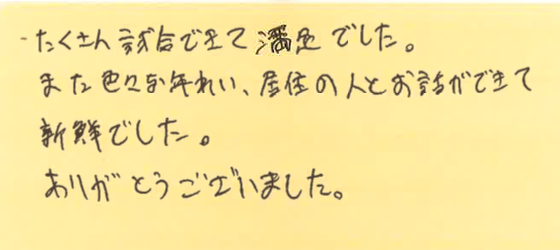 -たくさん試合できて満足でした。
また色々なお年れい、居住の人とお話ができて
新鮮でした。
ありがとうございました。